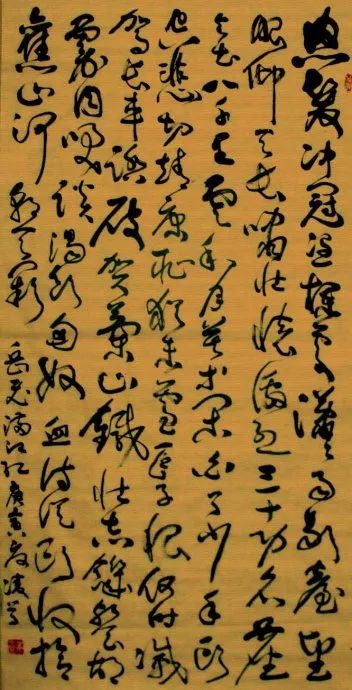 怒髮冲冠憑欄處瀟瀟雨歇抬望
眼仰天長嘯壯懷激烈三十功名塵
與土八千里雲和月莫等閒白了少年頭
空悲切靖康恥猶未雪臣子恨何時滅
駕長車踏破賀蘭山缺壯志饑餐胡
虜肉笑談渴飲匈奴血待從頭收拾
舊山河朝天闕
岳飛滿江紅庚寅夏